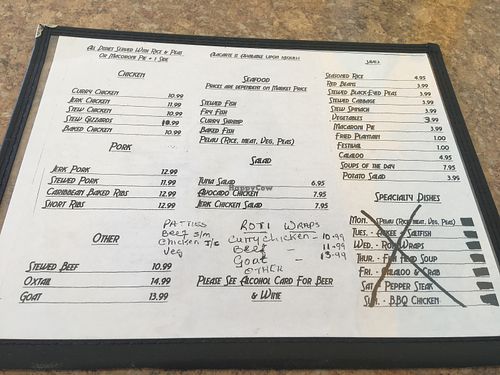 All Dishes Served With Rice & Peas
Or Macaroni Pie + 1 Side
Chicken
Curry Chicken 10.99
Jerk Chicken 11.99
Stew Chicken 10.99
Stew Gizzards 10.99
Baked Chicken 10.99
Pork
Jerk Pork 12.99
Stewed Pork 11.99
Caribbean Baked Ribs 12.99
Short Ribs 12.99
Other
Stewed Beef 10.99
Oxtail 14.99
Goat 13.99
Alacarte is Available Upon Request
Seafood
Prices are dependent on Market Price
Stewed Fish
Fry Fish
Curry Shrimp
Baked Fish
Pelau (Rice, meat, Veg, Peas)
Salad
Tuna Salad 6.95
Avocado Chicken 7.95
Jerk Chicken Salad 7.95
HappyCow
PATTIES
Beef s/m
Chicken J/C
Veg
ROTI WRAPS
Curry Chicken - 10.99
Beef - 11.99
Goat - 13.99
OTHER
Please See Alcohol Card For Beer
& Wine
Sides
Seasoned Rice 4.95
Red Beans 3.99
Stewed Black-Eyed Peas 3.99
Stewed Cabbage 3.99
Stew Spinach 3.99
Vegetables 3.99
Macaroni Pie 3.99
Fried Plantain 1.00
Festival 1.00
Calaloo 4.95
Soups of the day 7.95
Potato Salad 3.99
Specialty Dishes
Mon. - Pelau (Rice, meat, Veg, Peas)
Tues. - Akee & Saltfish
Wed. - Roti Wraps
Thur. - Fish Head Soup
Fri. - Calaloo & Crab
Sat. - Pepper Steak
Sun. - B.B.Q Chicken